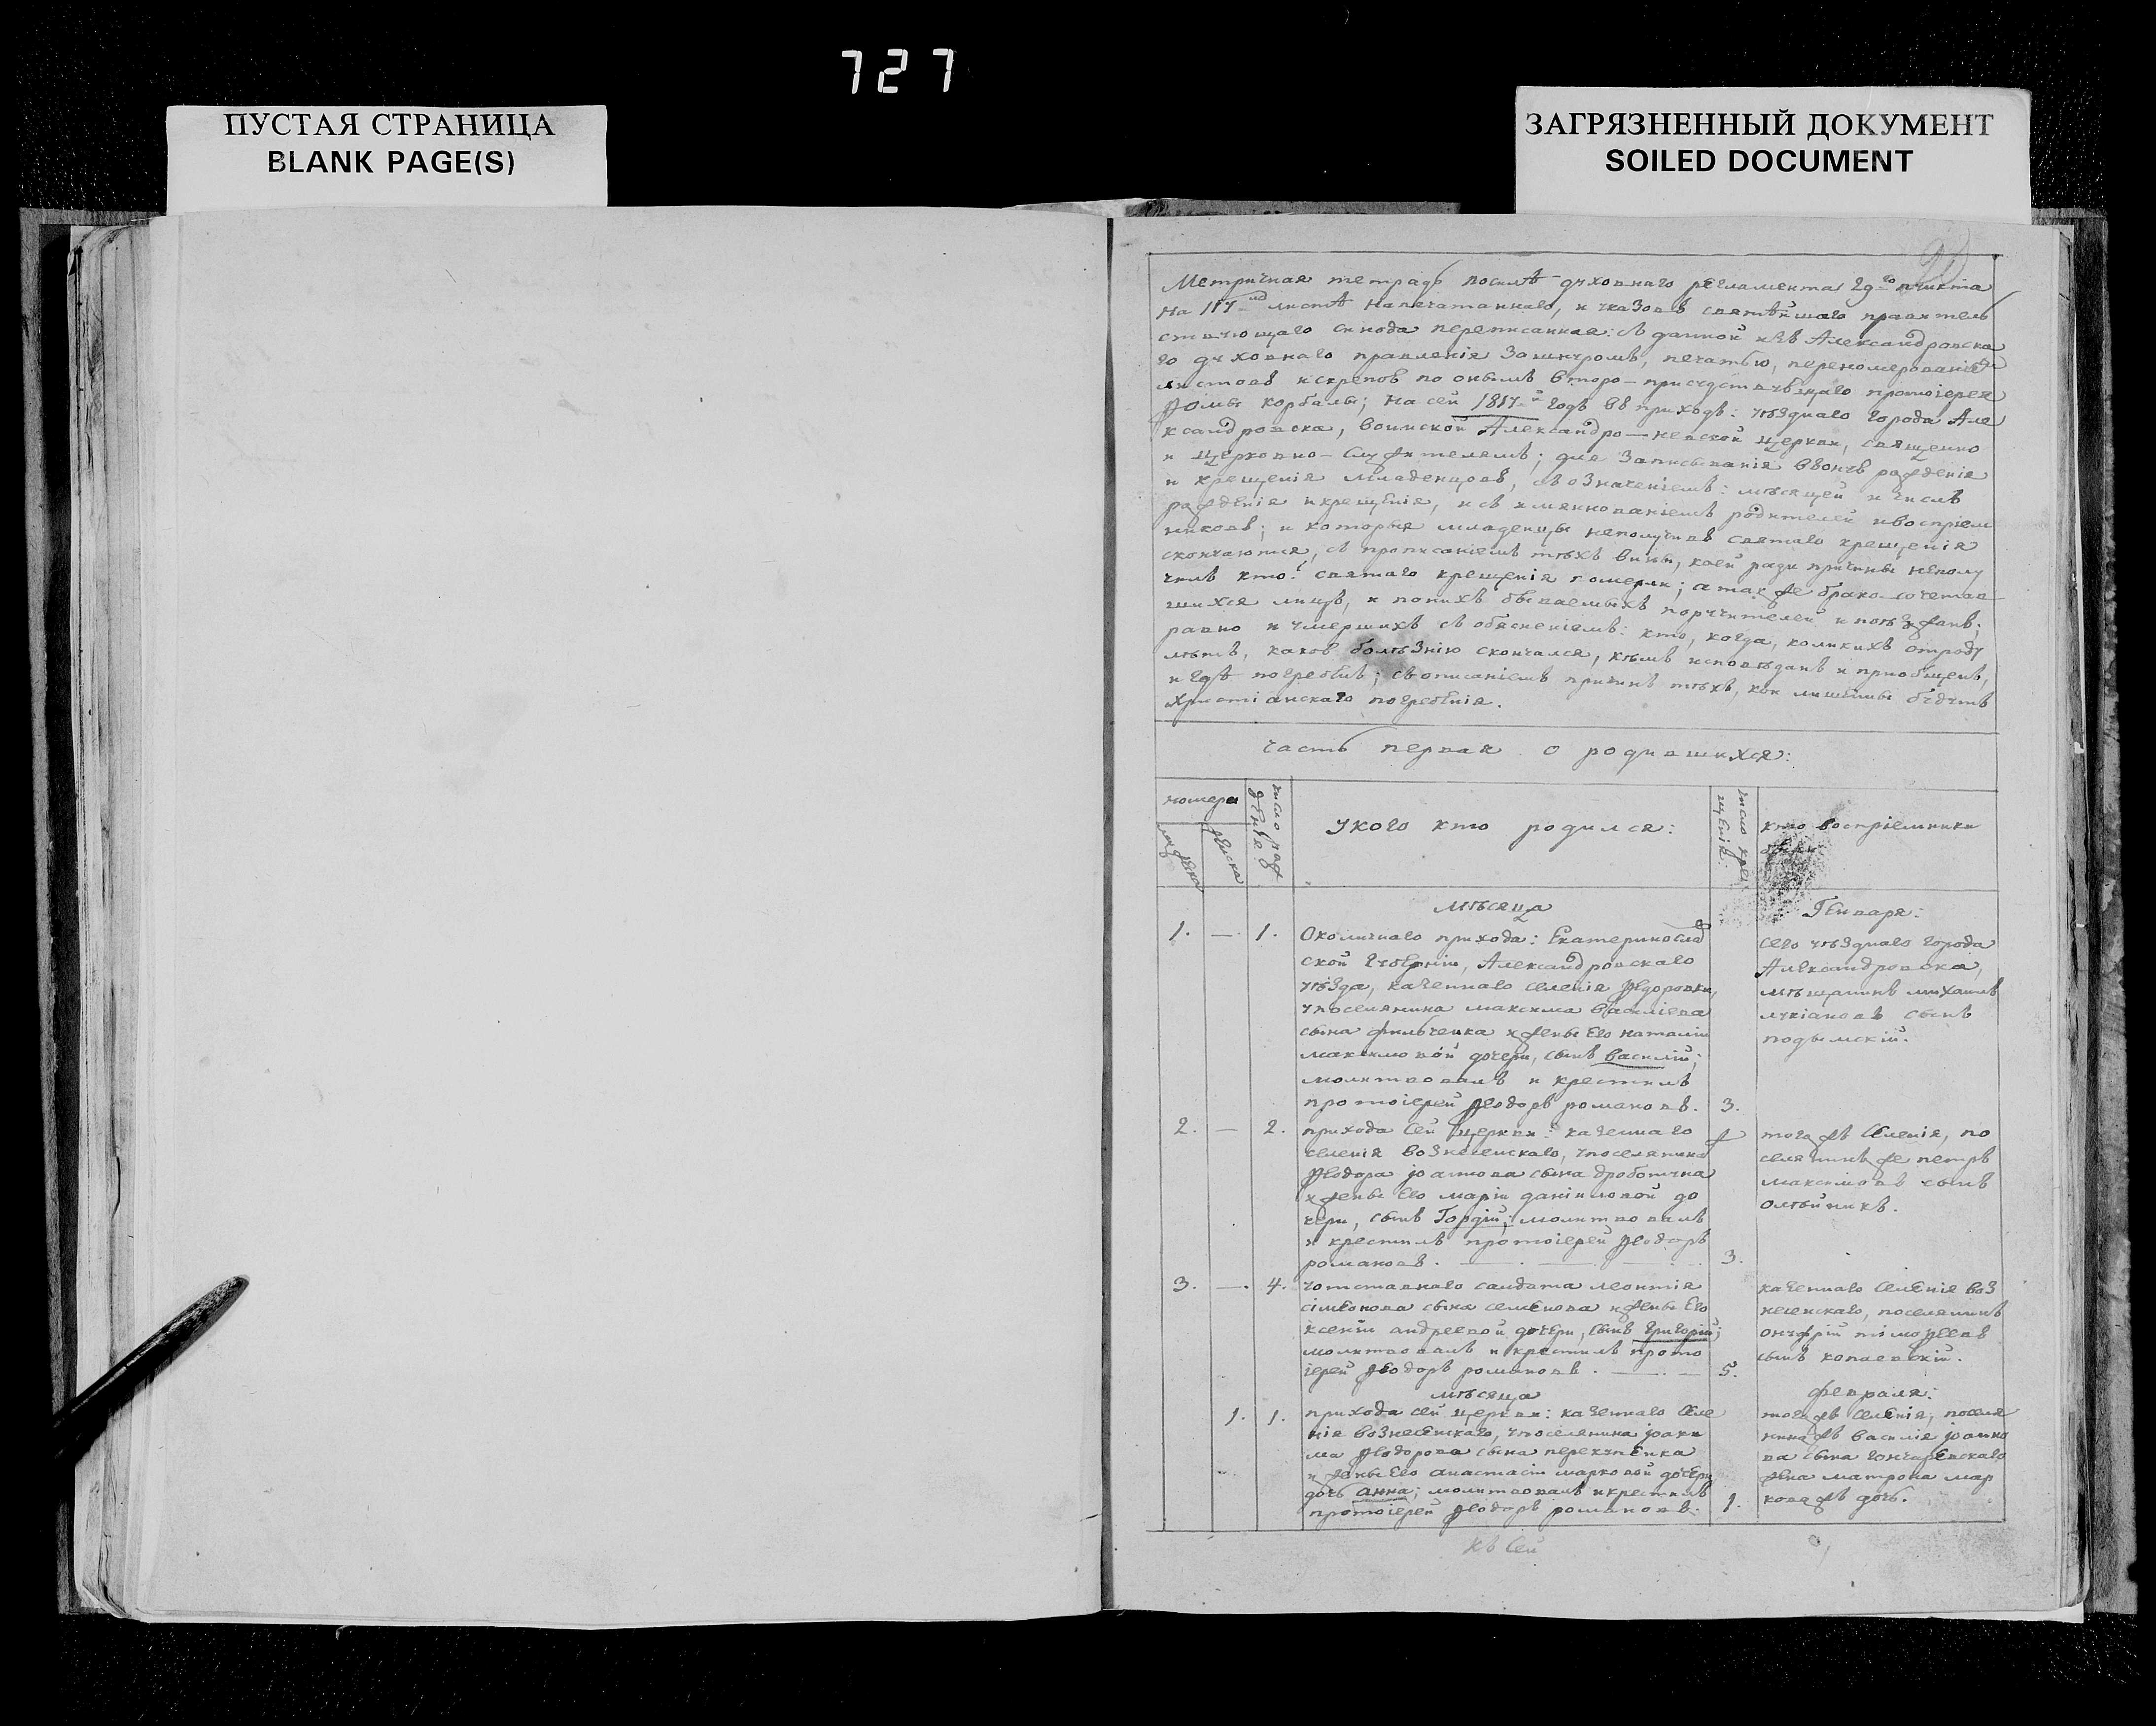 727
ПУСТАЯ СТРАНИЦА
BLANK PAGE(S)
ЗАГРЯЗНЕННЫЙ ДОКУМЕНТ
SOILED DOCUMENT
Метричная тетрадь посилѣ духовнаго регламента 29-го пункта
на 117-мъ листѣ напечатаннаго, и указовъ святѣйшаго правитель
ствующаго синода переписанная: съ данной изъ Александровска
го духовнаго правленія за шнуромъ, печатью, перенумерованіемъ
листовъ искрепов по онымъ второ-присудствующаго протоіерея
Ѳомы Корбалы; на сей 1817-й годъ въ приходъ: уѣзднаго города Але
ксандровска, воинской Александро-невской церкви, священно
и церковно-служителямъ; для записыванія ввонъ рожденія
и крещенія младенцовъ, съ означеніемъ: мѣсяцей и числъ
рожденія икрещенія, и съ имяннованіемъ родителей ивоспріем
никовъ; и которыя младенцы неполучивъ святаго крещенія
скончаются, съ прописаніемъ тѣхъ вины, коей ради причины неполу
чивъ кто? святаго крещенія померли; атакже брако-сочетав
шихся лицъ, и поникъ бываемыхъ поручителей и поѣзжанъ;
равно и умершихъ съ обясненіемъ: кто, когда, коликихъ отроду
лѣтъ, какою болѣзнію скончался, кѣмъ исповѣданъ и приобщенъ,
и гдѣ погребенъ; съ описаніемъ причинъ тѣхъ, кои лишены будутъ
христіанскаго погребенія.
часть первая о родившихся:
номера
мужеска
женска
число рож
денія.
укого кто родился:
число кре
щенія.
кто воспріемники
мѣсяца
Генваря:
1. — 1. Околичнаго прихода: Екатеринослав
ской губерніи, Александровскаго
уѣзда, казеннаго селенія Ѳедоровки,
упоселянина максима василіева
сына фильченка ижены его наталіи
максимовой дочери, сынъ василій;
молитвовалъ и крестилъ
протоіерей Ѳеодоръ романовъ. 3.
сего уѣзднаго города
Александровска,
мѣщанинъ михаилъ
лукіановъ сынъ
подымскій.
2. — 2. прихода сей церкви: казеннаго
селенія вознесенскаго, упоселянина
Ѳеодора іоаннова сына дроботуна
ижены его маріи даніиловой до
чери, сынъ Гордій; молитвовалъ
и крестилъ протоіерей Ѳеодоръ
романовъ. 3.
тогожъ селенія, по
селянинъ же петръ
максимовъ сынъ
олѣйникъ.
3. — 4. уотставнаго салдата леонтія
сімеонова сына семенова ижены его
ксеніи андреевой дочери, сынъ григорій;
молитвовалъ и крестилъ прото
іерей Ѳеодоръ романовъ. 5.
казеннаго селенія воз
несенскаго, поселянинъ
онуфрій тімоѳеевъ
сынъ копаевскій.
мѣсяца
февраля:
1. 1. прихода сей церкви: казеннаго селе
нія вознесенскаго, упоселянина іоаки
ма Ѳеодорова сына перехупенка
и жены его анастасіи марковой дочери
дочь анна; молитвовалъ икрестилъ
протоіерей Ѳеодоръ романовъ. 1.
тогожъ селенія, поселя
нинажъ василія іоанно
ва сына гончаревскаго
жена матрона мар
коважъ дочь.
къ сей